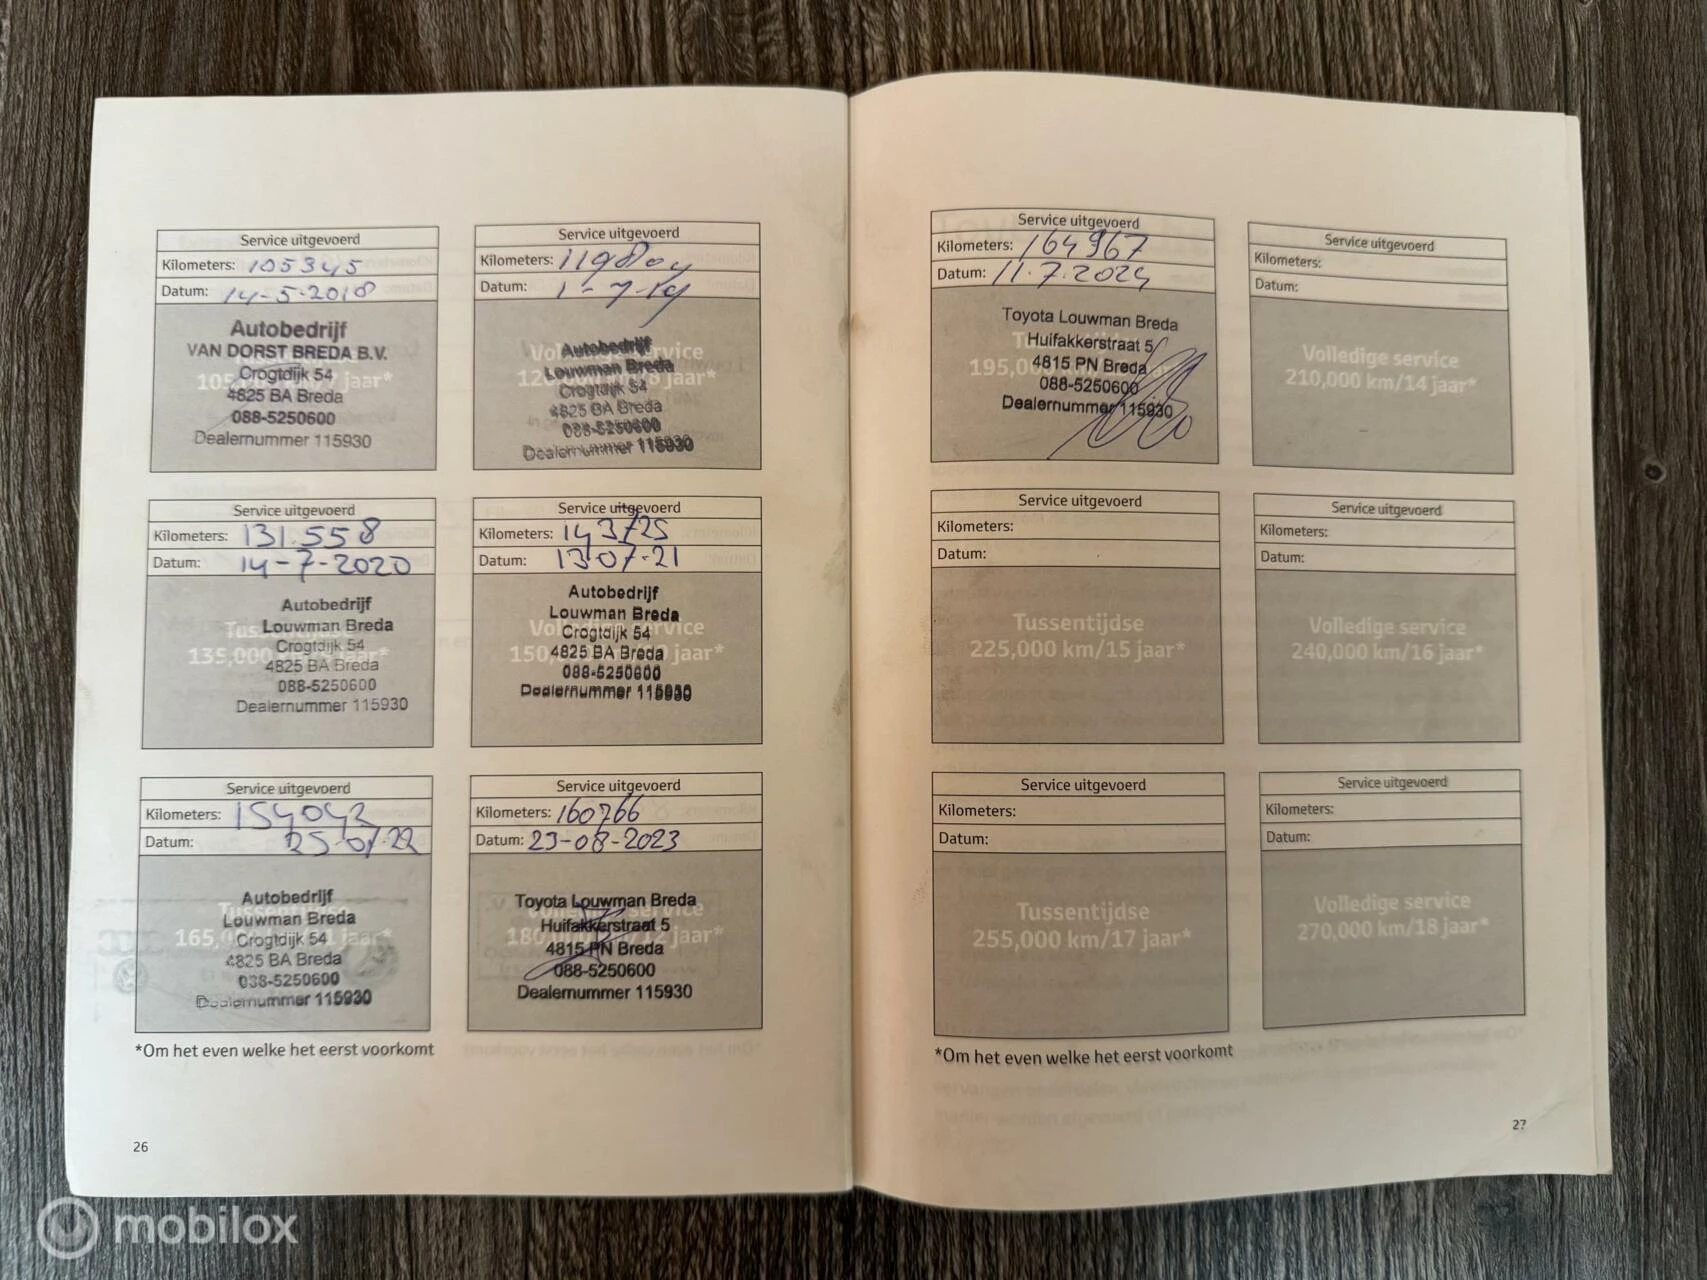 Service uitgevoerd
Kilometers: 105345
Datum: 14-5-2018
Autobedrijf
VAN DORST BREDA B.V.
Crogtdijk 54
4825 BA Breda
088-5250600
Dealernummer 115930
Service uitgevoerd
Kilometers: 119804
Datum: 1-7-19
Autobedrijf
Louwman Breda
Crogtdijk 54
4825 BA Breda
088-5250600
Dealernummer 115930
Service uitgevoerd
Kilometers: 131.558
Datum: 14-7-2020
Autobedrijf
Louwman Breda
Crogtdijk 54
4825 BA Breda
088-5250600
Dealernummer 115930
Service uitgevoerd
Kilometers: 143725
Datum: 13-07-21
Autobedrijf
Louwman Breda
Crogtdijk 54
4825 BA Breda
088-5250600
Dealernummer 115930
Service uitgevoerd
Kilometers: 154042
Datum: 25-07-22
Autobedrijf
Louwman Breda
Crogtdijk 54
4825 BA Breda
088-5250600
Dealernummer 115930
Service uitgevoerd
Kilometers: 160766
Datum: 23-08-2023
Toyota Louwman Breda
Huifakkerstraat 5
4815 PN Breda
088-5250600
Dealernummer 115930
*Om het even welke het eerst voorkomt
26
Service uitgevoerd
Kilometers: 164967
Datum: 11.7.2024
Toyota Louwman Breda
Huifakkerstraat 5
4815 PN Breda
088-5250600
Dealernummer 115930
Service uitgevoerd
Kilometers:
Datum:
Volledige service
210,000 km/14 jaar*
Service uitgevoerd
Kilometers:
Datum:
Tussentijdse
225,000 km/15 jaar*
Service uitgevoerd
Kilometers:
Datum:
Volledige service
240,000 km/16 jaar*
Service uitgevoerd
Kilometers:
Datum:
Tussentijdse
255,000 km/17 jaar*
Service uitgevoerd
Kilometers:
Datum:
Volledige service
270,000 km/18 jaar*
*Om het even welke het eerst voorkomt
27
mobilox